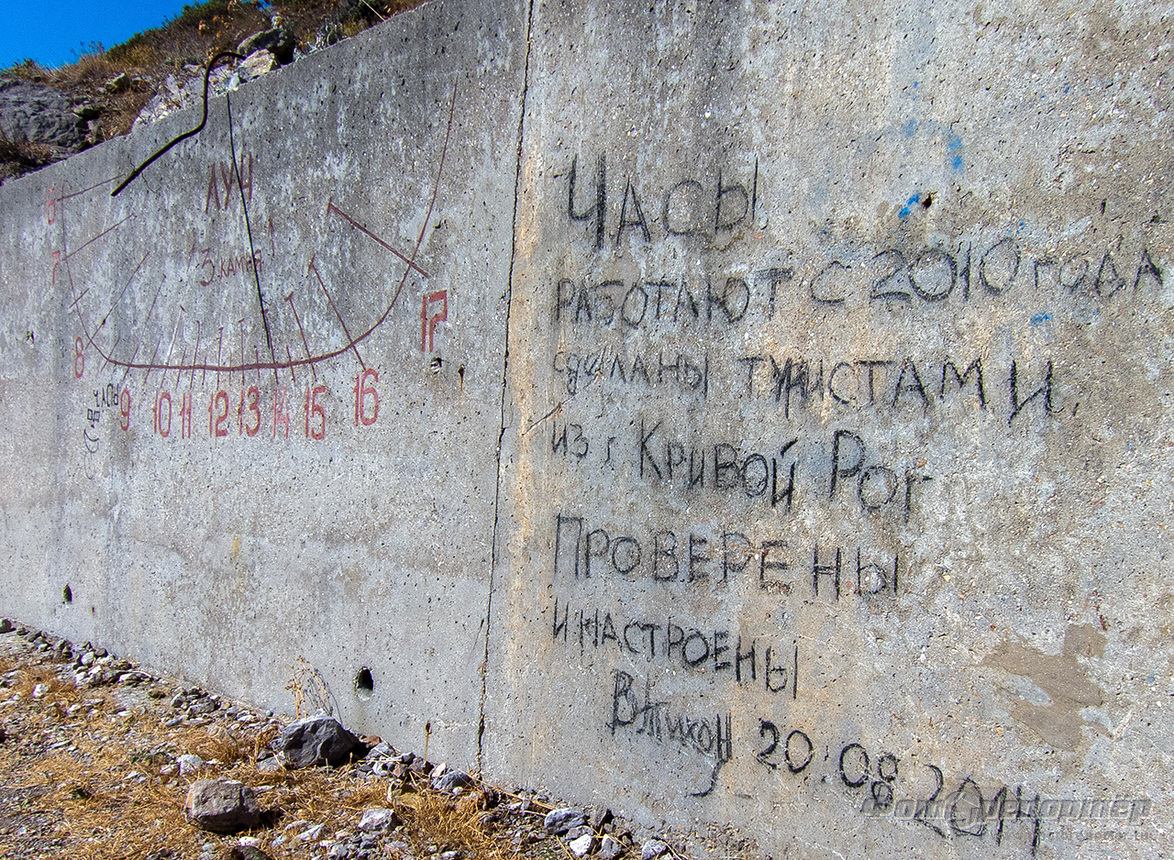 ЛУЧ
3 камня
6
7
8
9 10 11 12 13 14 15 16 17
ЧАСЫ
Часы
работают с 2010 года
сделаны туристами
из г Кривой Рог
Проверены
и настроены
20:08 2014
Фоторепортёр